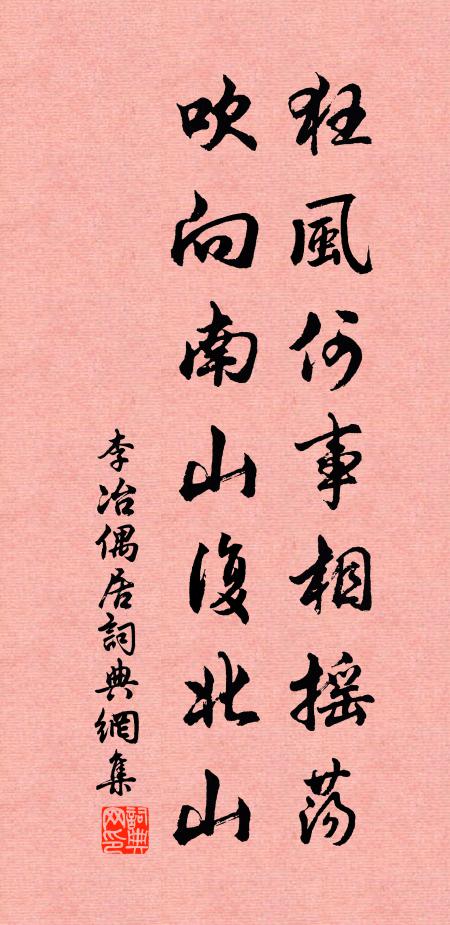 狂風何事相摇蕩
吹向南山復北山
李冶偶居詞典網集
詞典網印